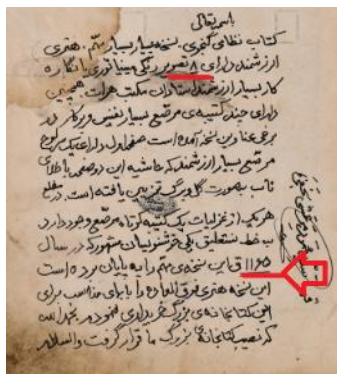 باسمه تعالی
کتاب نظامی گنجوی. نسخه بسیار بسیار مهم، هنری
ارزشمند دارای ۸ تصویر رنگی مینیاتوری با نگاره
کار بسیار ارزشمند استادان مکتب هرات همچنین
دارای چند کتیبه‌ی مرصّع بسیار نفیس و پرکار در
برخی عناوین نسخه آمده است صفحه اول دارای یک سرلوح
مرصّع بسیار ارزشمند که حاشیه این دو صفحه با طلای
ناب بصورت گل و برگ تزیین یافته است. در مطلع
هر یک از غزلیات یک کتیبه کوتاه مرصّع وجود دارد
به خط نستعلیق یکی خوشنویسان مشهور که در سال
۱۱۶۵ ق این نسخه‌ی مهم را به پایان برده است
این نسخه هنری فوق العاده را با بهای مناسب برای
این کتابخانه‌ی بزرگ خریداری نمودم بحمد الله
که نصیب کتابخانه‌ی بزرگ ما قرار گرفت والسلام